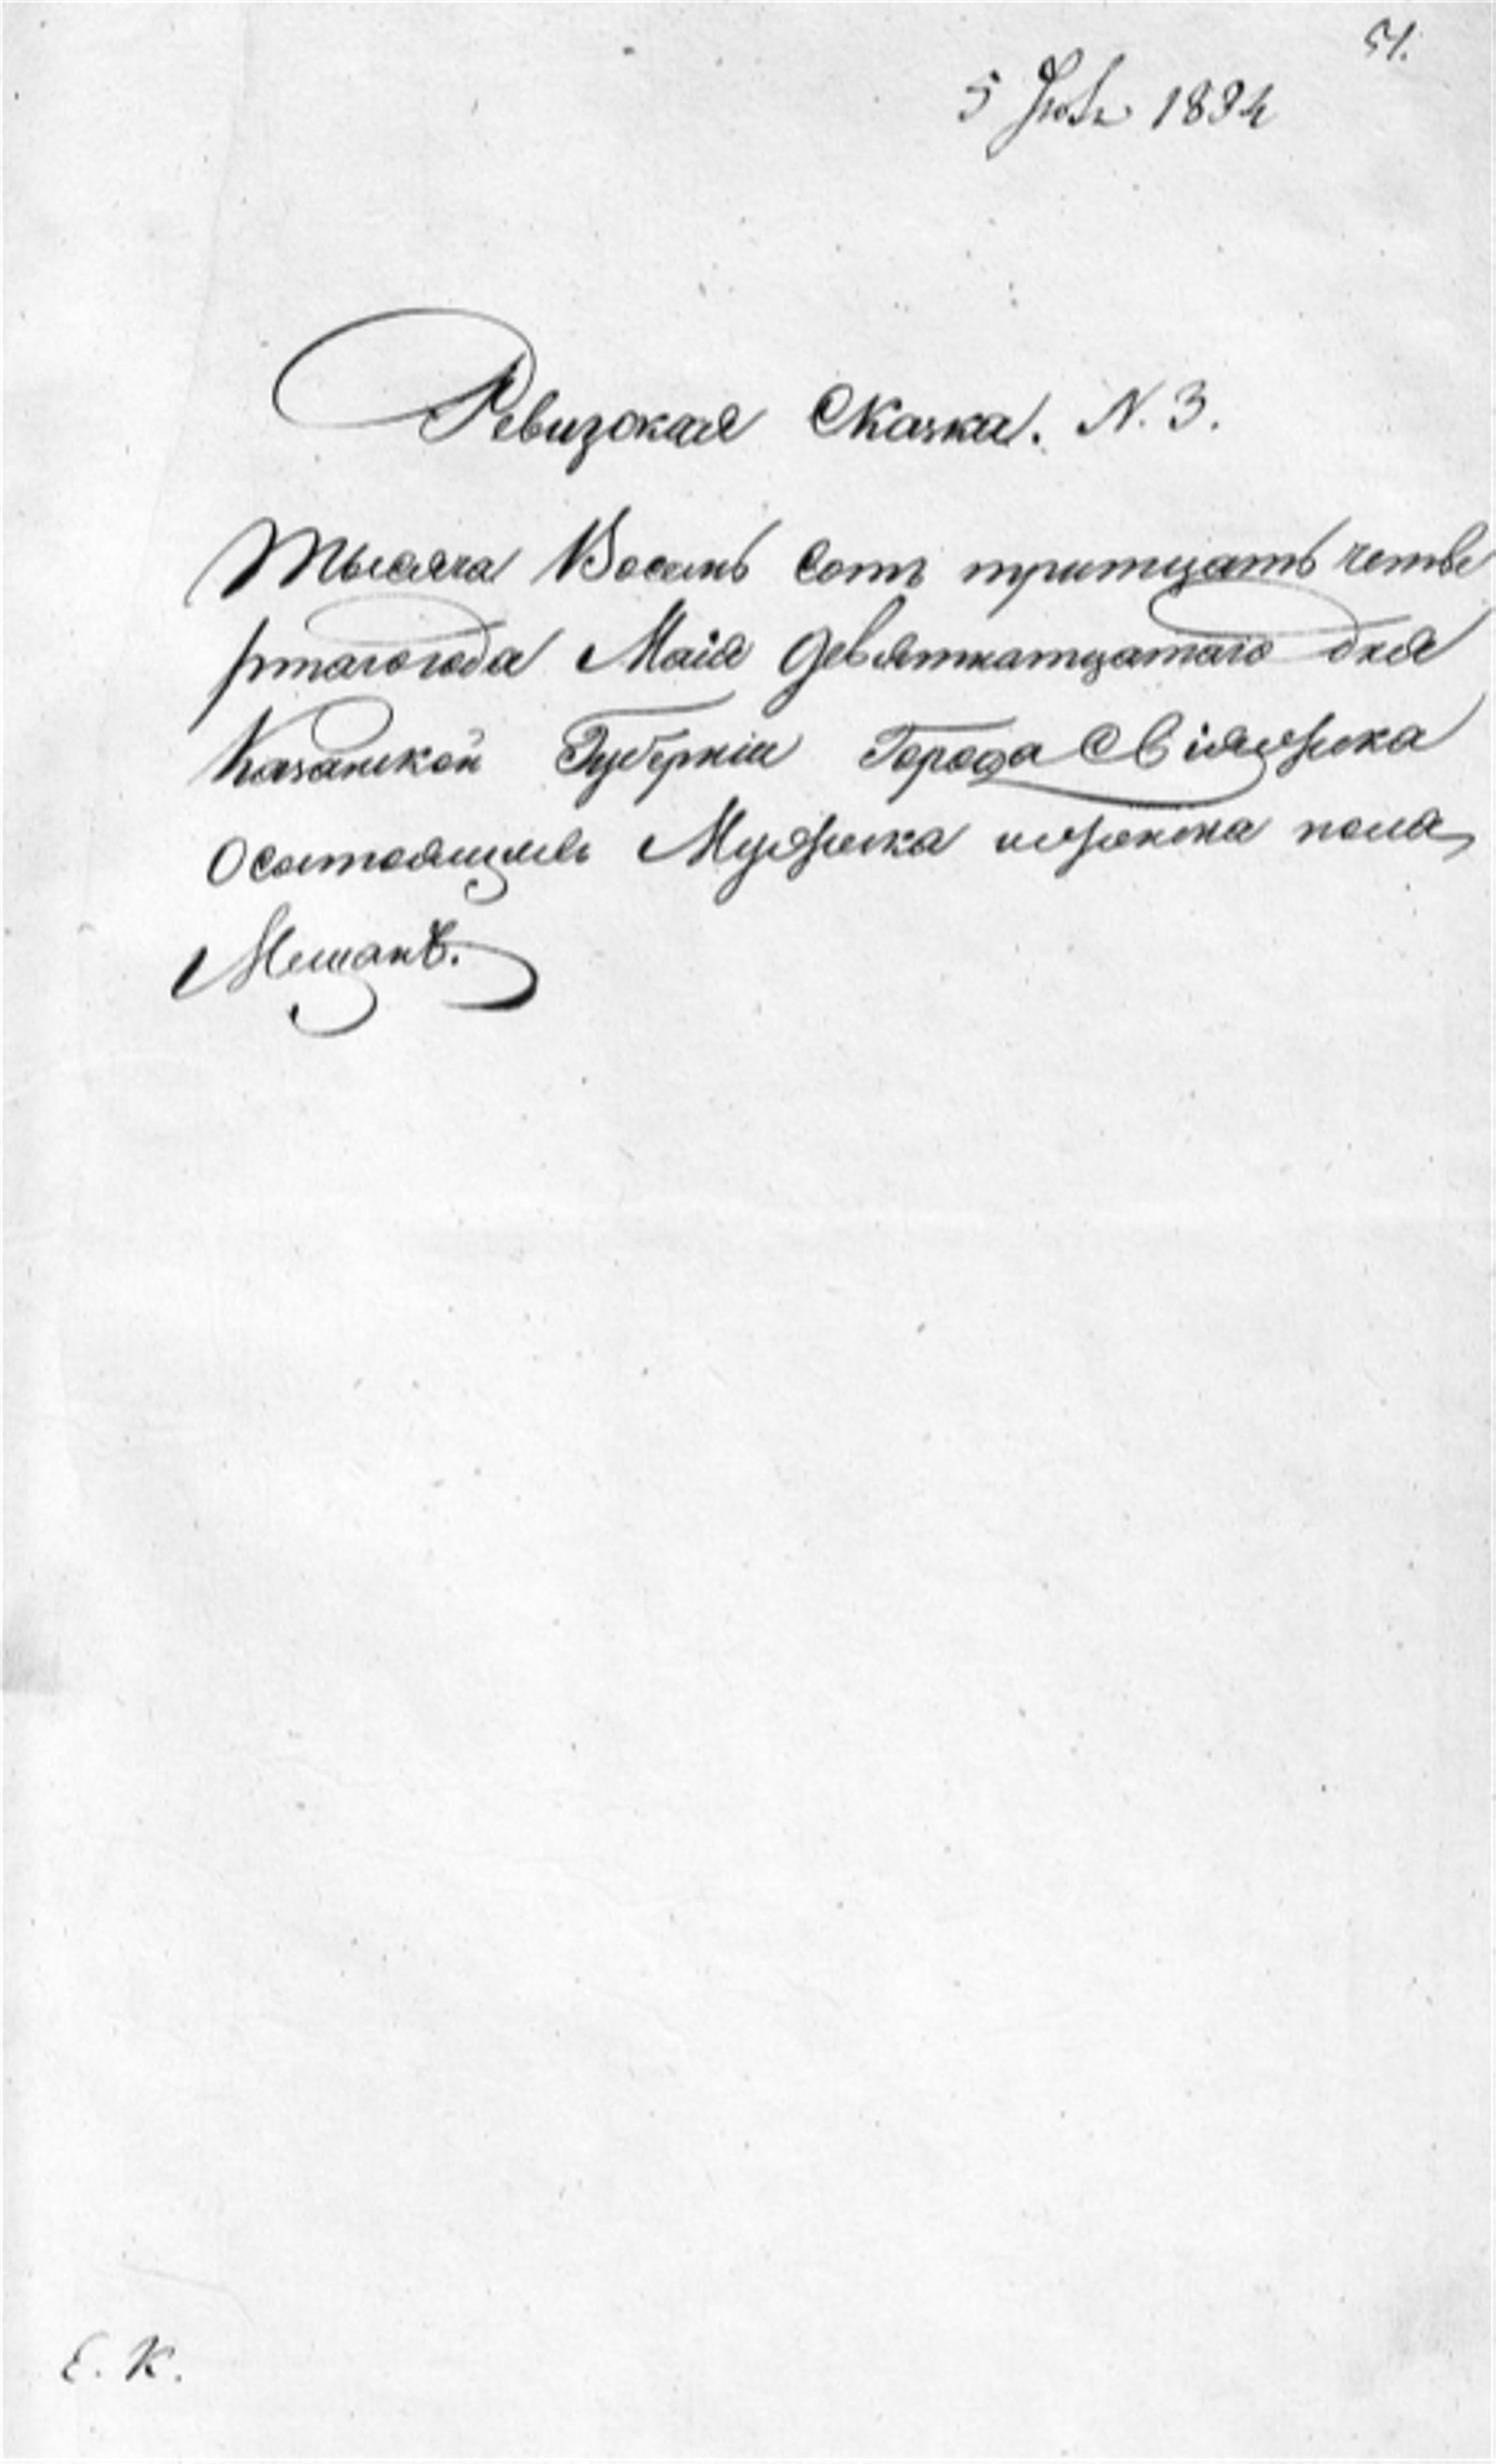 51.
5 Июля 1834
Ревизская Сказка. N. 3.
Тысяча Восемь сотъ тритцать четве
ртагогода Маія девятнатцатаго дня
Казанской Губерніи Города Свіяжска
Осостоящихъ Мужеска иженска пола
Мещанъ.
Е. К.